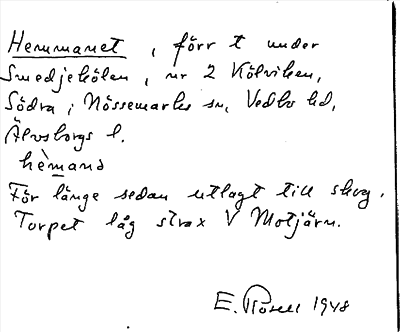 Hemmanet, förr t under
Smedjekölen, nr 2 Kölviken,
Södra, i Nössemarks sn, Vedbo hd,
Älvsborgs l.
hèmans
För länge sedan utlagt till skog.
Torpet låg strax V Motjärn.
E. Rosell 1948